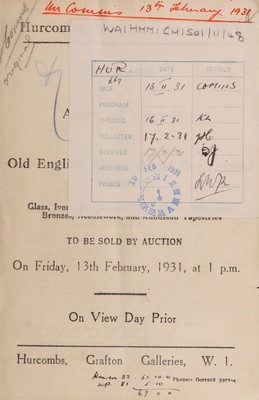 Mr Comins 13th February 1931
WA/HMM/CM/Sal/11/48
Hurcombs
HUR.
£67
DATE
SALE 13 II 31 COMINS
PURCHASE
CHECKED 16 II 31
COLLECTED 17. 2. 31
RECEIVED
PASSED
FEB 1931
Old Engli
Glass, Ive
Bronzes, Needlework, and Aubusson Tapestries
TO BE SOLD BY AUCTION
On Friday, 13th February, 1931, at 1 p.m.
On View Day Prior
Hurcombs, Grafton Galleries, W. 1.
Phone:- Gerrard 5971-4
32 61-10-0
81 5-10
67 0 0